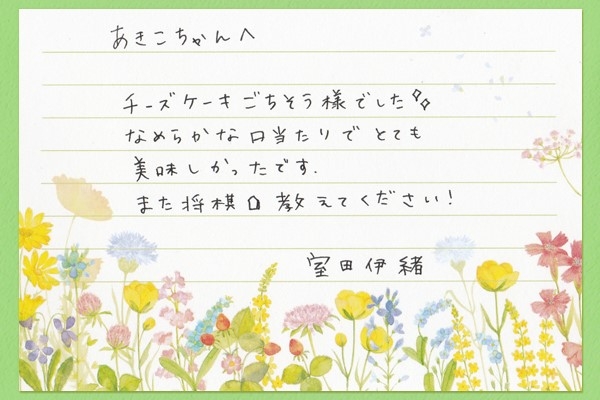 あきこちゃんへ
チーズケーキごちそう様でした✨
なめらかな口当たりでとても
美味しかったです.
また将棋☖教えてください!
室田伊緒